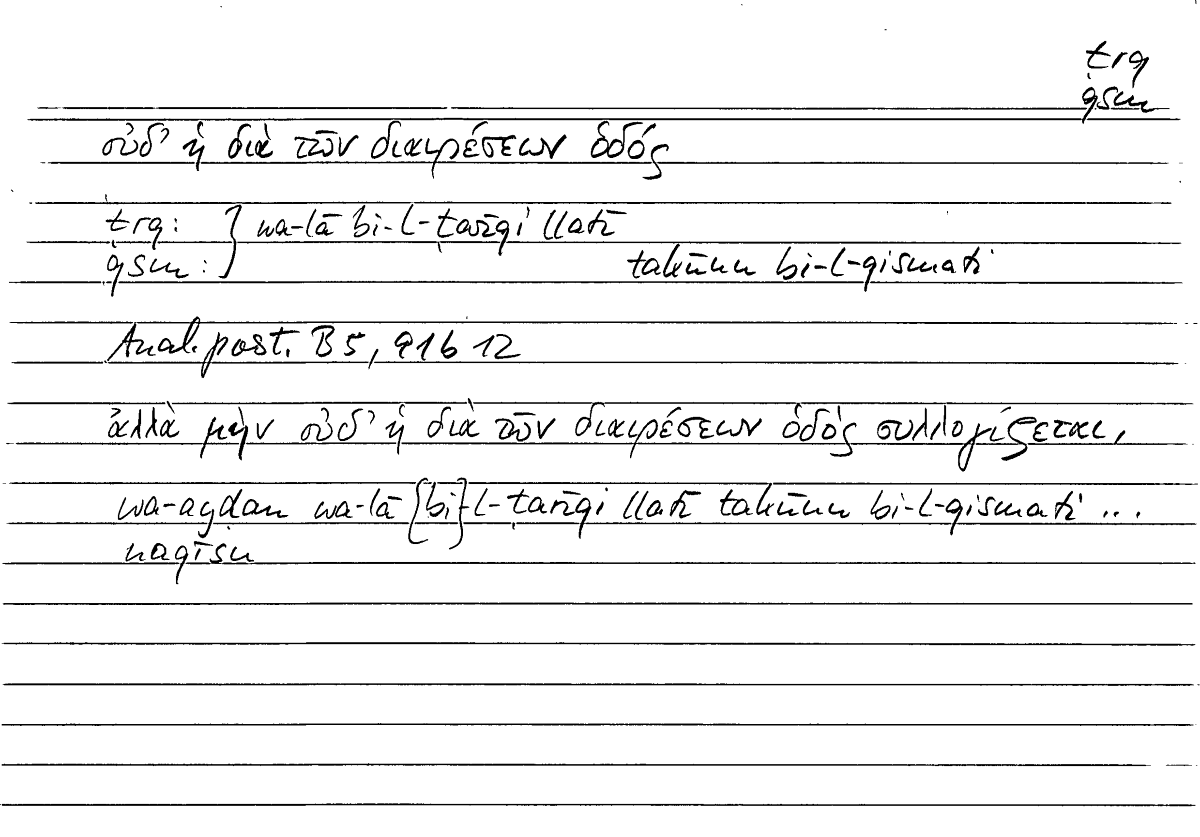 ṭrq
qsm
οὐδ' ἡ διὰ τῶν διαιρέσεων ὁδός
ṭrq: } wa-lā bi-l-ṭarīqi llatī
qsm: takūnu bi-l-qismati
Anal. post. B 5, 91b 12
ἀλλὰ μὴν οὐδ' ἡ διὰ τῶν διαιρέσεων ὁδὸς συλλογίζεται,
wa-ayḍan wa-lā {bi}-l-ṭarīqi llatī takūnu bi-l-qismati ...
naqīsu